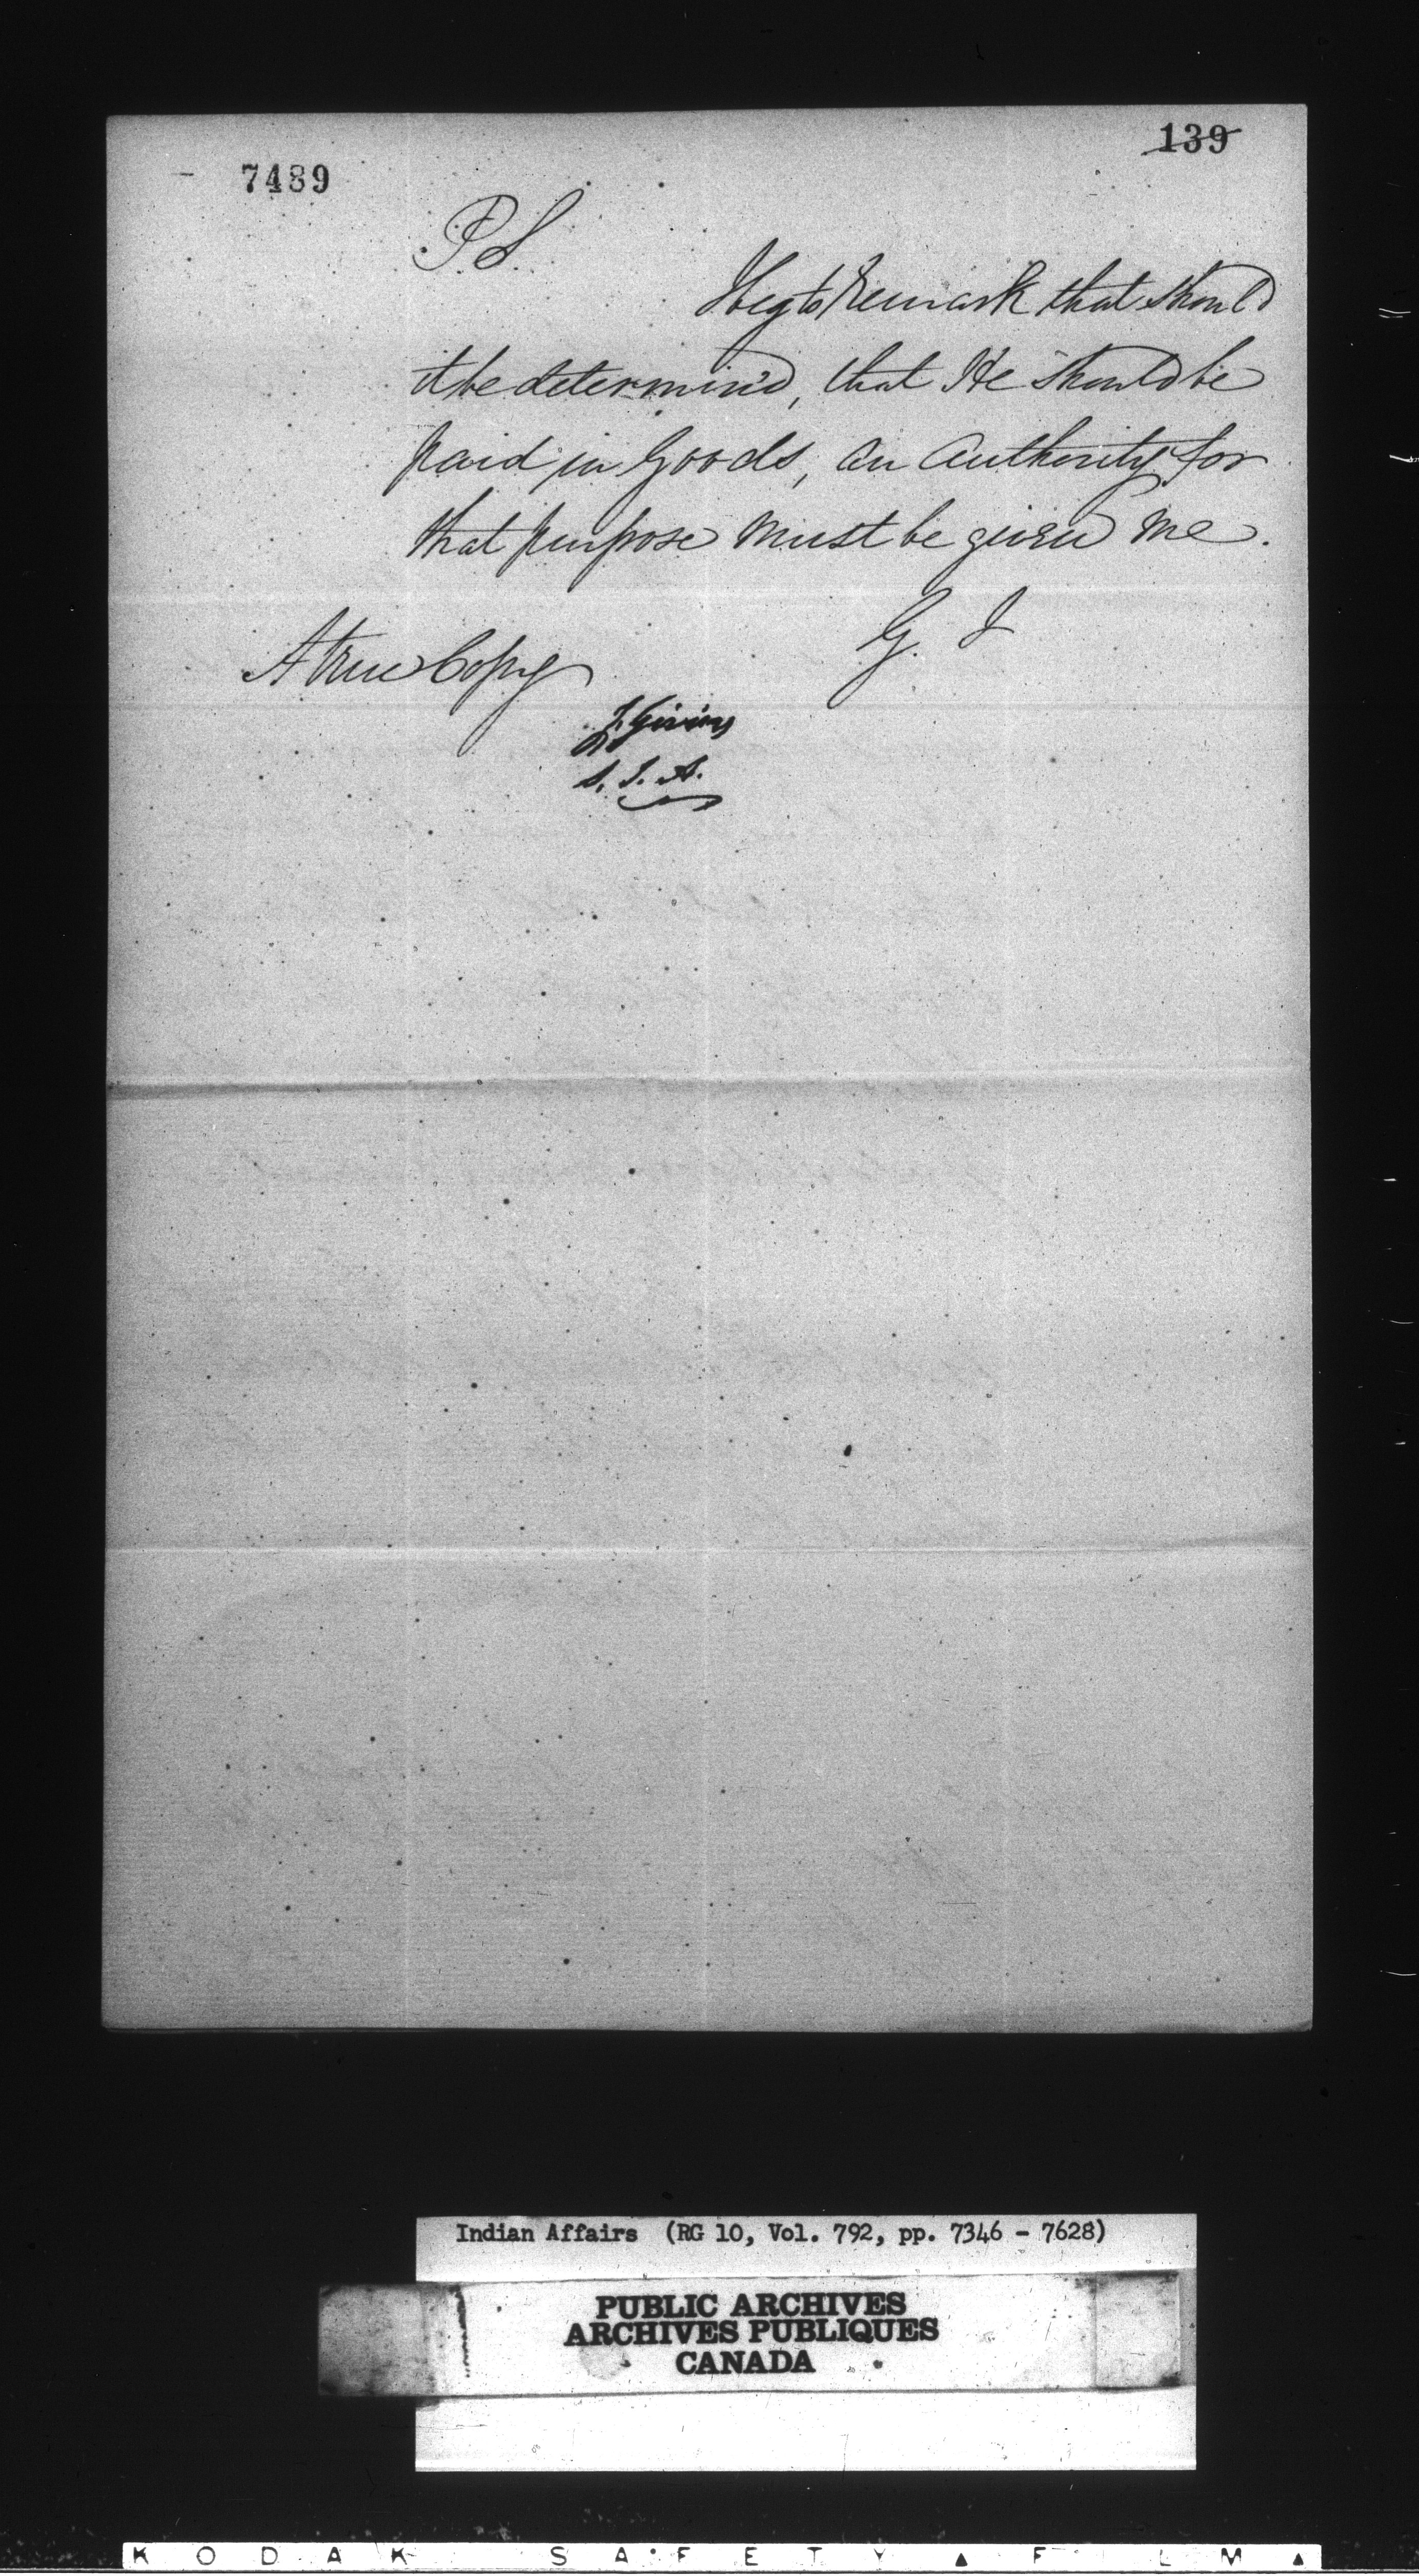 139
7489
P.S.
I beg to Remark that should
it be determin'd, that He should be
paid in Goods, an Authority for
that purpose must be given me.
G. I
A true Copy
J. Givins
S. I. A.
Indian Affairs (RG 10, Vol. 792, pp. 7346 - 7628)
PUBLIC ARCHIVES
ARCHIVES PUBLIQUES
CANADA
KODAK SAFETY FILM